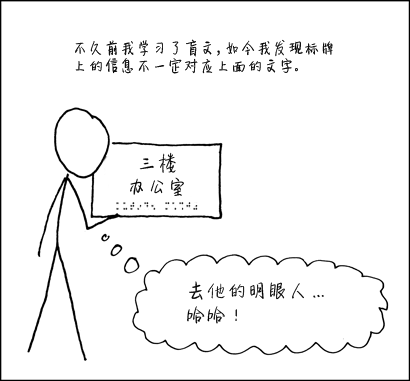 不久前我学习了盲文，如今我发现标牌
上的信息不一定对应上面的文字。
三楼
办公室
去他的明眼人...
哈哈！